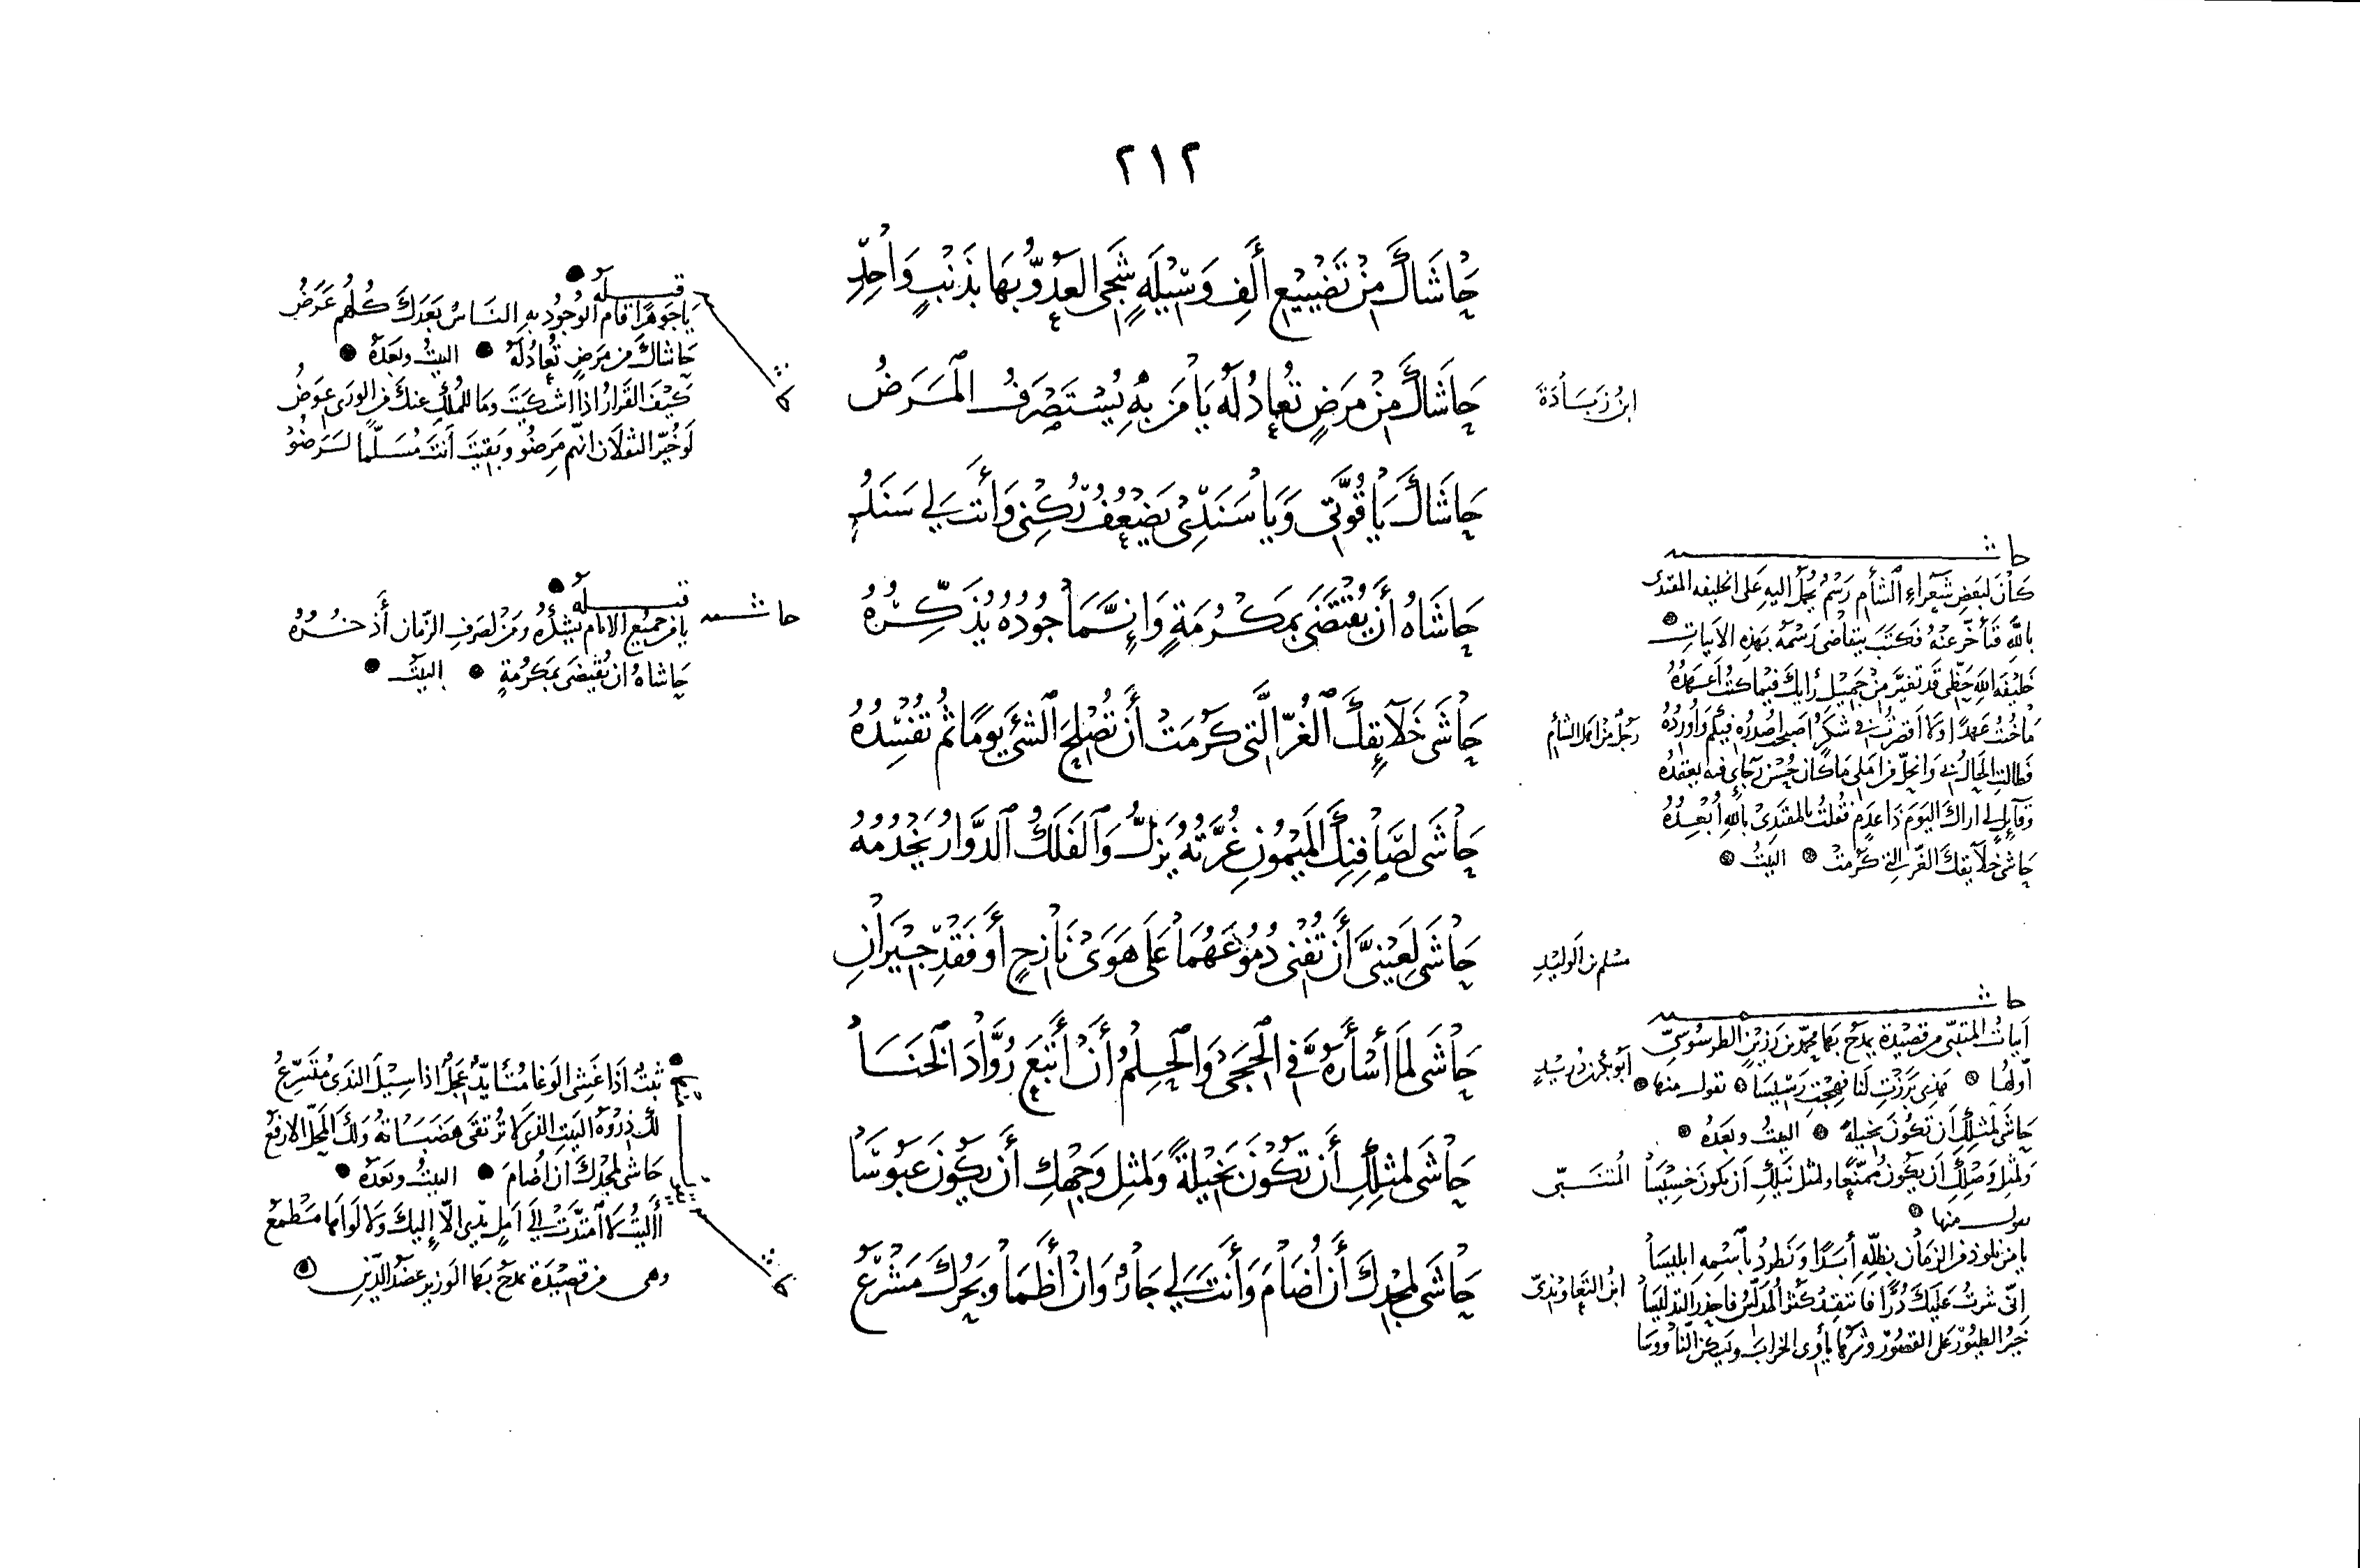 ٢١٢
حَاشَاكَ مِنْ تَضْيِيْعِ أَلفِ وَسِيْلَةٍ شَجِيَ العَدُوُّ بِهَا بِذَنْبٍ وَاحِدِ
ابنُ زبَادَةَ
حَاشَاكَ مِنْ مَرَضٍ تُعَادُ لَهُ يَا مَنْ بِهِ يُسْتَصْرَفُ المَرَضُ
حَاشَاكَ يَا قُوَّتِي وَيَا سَنَدِيْ يَضْعُفُ رُكْنِي وَأَنْتَ لِي سَنَدُ
حَاشَاهُ أَنْ يُقْتَضَى بِمَكْرُمَةٍ وَإِنَّمَا جُوْدُهُ يُذَكِّرُهُ
رَجُلٌ مِنْ أهل الشأم
حَاشَى خَلَائِقِكَ الغُرِّ الَّتِي كَرُمَتْ أَنْ تُصْلِحَ الشَّيْءَ يَوْمًا ثُمَّ تُفْسِدُهُ
حَاشَى لِصَافِنِكَ المَيْمُونِ غُرَّتُهُ يَزِلُّ وَالفَلَكُ الدَّوَّارُ يَخْدُمُهُ
مُسْلم بن الوَليْدِ
حَاشَى لِعَيْنِيَّ أَنْ تُفْنِي دُمُوْعَهُمَا عَلَى هَوَىً نَازِحٍ أَو فَقْدِ جِيْرَانِ
أبُو بَكْرِ بن دُرَيْدٍ
حَاشَى لِمَا أَسْأَرَهُ فِيَّ الحِجَى وَالحِلْمُ أَنْ أَتْبَعَ رُوَّادَ الخَنَا
المُتَنَبِّي
حَاشَى لِمِثْلِكِ أَنْ تَكُوْنَ بَخِيْلَةً وَلِمِثْلِ وَجْهِكِ أَنْ يَكُوْنَ عَبُوْسَا
ابنُ التَّعَاوِيْذِيّ
حَاشَى لِمَجْدِكَ أَنْ أُضَامَ وَأَنْتَ لِي جَارٌ وَأَنْ أَظْمَا وَبَحْرُكَ مَشْرَعُ
حاشية
كَانَ لبَعْضِ شُعَرَاءِ الشَّأمِ رَسْمٌ يُحْمَلُ إليهِ عَلَى الخليفه المقتدى
باللَّهِ فَتَأخَّرَ عَنْهُ فَكَتَبَ يتقاضى رَسْمَهُ بهَذِهِ الأبيَاتِ
خَليْفَةَ اللَّهِ حَظِّي قَد تغيَّرَ مِنْ جَمِيْلِ رَأيِكَ فيْمَا كنتُ أَعهَدُهُ
مَا خُنْتُ عَهْدًا وَلَا أَقصَرْتُ في شكرٍ أصبحتُ أُصدِرُهُ فيكُم وَأُورِدُهُ
فَطَالتِ الحَالُ بي وَانحلَّ من أملي مَا كَانَ حُسْنُ رَجَائي فيه يعقِدُهُ
وَقَائلٍ لي أراكَ اليَومَ ذَا عَدَمٍ فقُلتُ بالمقتَدِىْ باللَّهِ أُبْعِدُهُ
حَاشى خلَائِقِكَ الغُرِّ التي كرُمَتْ البَيْتُ
حاشية
أبيَاتُ المُتنَبّي من قصيْدَة يمدَحُ بهَا محمَّد بن زُرَيْقٍ الطرسُوسيّ
أوّلهَا هَذِي بَرَزْتِ لَنَا فهِجْتِ رَسِيْسَا يقول منها
حَاشَى لمثلِكِ أن تَكُوْنَ بخيلةً البيتُ وبعدُه
وَلمثلِ وَصْلِكِ أَن يَكُونَ مُمَنَّعًا ولمثل نَيْلِكِ أَن يَكُونَ خسِيْسَا
يقول منها
يَا مَن نلوذُ من الزمَان بظلِّهِ أَبَدًا وَنَطرُدُ باسْمِهِ ابليْسَا
انّى نثرتُ عَليكَ دُرًّا فانتقِدْ كثُرَ المُدَلِّسُ فاحذر التدليْسَا
خَيْرُ الطيُوْرِ عَلى القصُوْرِ وشَرُّهَا يَأوِى الخرابَ ويَسكنُ النَّاوُوسَا
قبله
يَا جَوهَرًا قامَ الوُجُودُ بهِ النَّاسُ بَعْدَكَ كُلُّهُم عَرَضُ
حَاشاكَ من مرَضٍ تُعَادُ لَهُ البيتُ وبعَدَهُ
كَيْفَ القَرارُ إذا اشتكَيْتَ ومَا للمُلْكِ عنكَ من الورَى عِوَضُ
لَو خُيِّرَ الثقلَان انّهم مَرِضُو وَبَقِيتَ أنتَ مُسَلَّمًا لَرَضُوْ
حاشية
قبله
يا مَن جميْعُ الأنام يشكُرُهُ
حَاشَاهُ ان يُقْتضَى بمَكرُمةٍ البيتُ
ثَبْتٌ اذَا غَشِيَ الوَغَا مُتَأيِّدٌ عَجِلٌ إذا سِيْلَ النَدَى مُتَسَرِّعُ
لكَ ذِرْوَةُ البَيتِ الذي لَا تُرتقَى هَضَبَاتهُ وَلكَ المَحَلُّ الأرفَعُ
حَاشَى لمجْدِكَ انْ أُضامَ البيتُ وبعَدُه
آلَيْتُ لَا امتَدَّتْ إلى أملٍ يَدِي الَّا إليكَ وَلَا لَوَاهَا مَطْمَعُ
وهى من قصيْدَة يمدَحُ بهَا الوَزير عضُدَ الدِّيْنِ